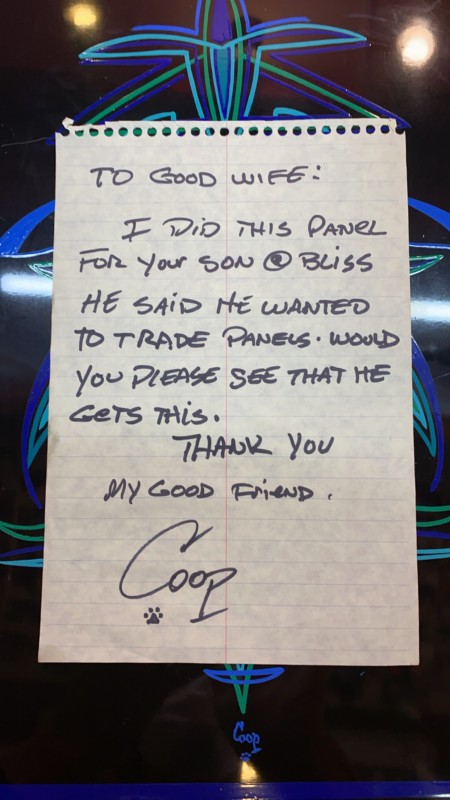 TO GOOD WIFE:
I DID THIS PANEL
FOR your SON @ BLISS
HE SAID HE WANTED
TO TRADE PANELS. WOULD
YOU PLEASE SEE THAT HE
GETS THIS.
THANK YOU
MY GOOD FriEND.
Coop
Coop